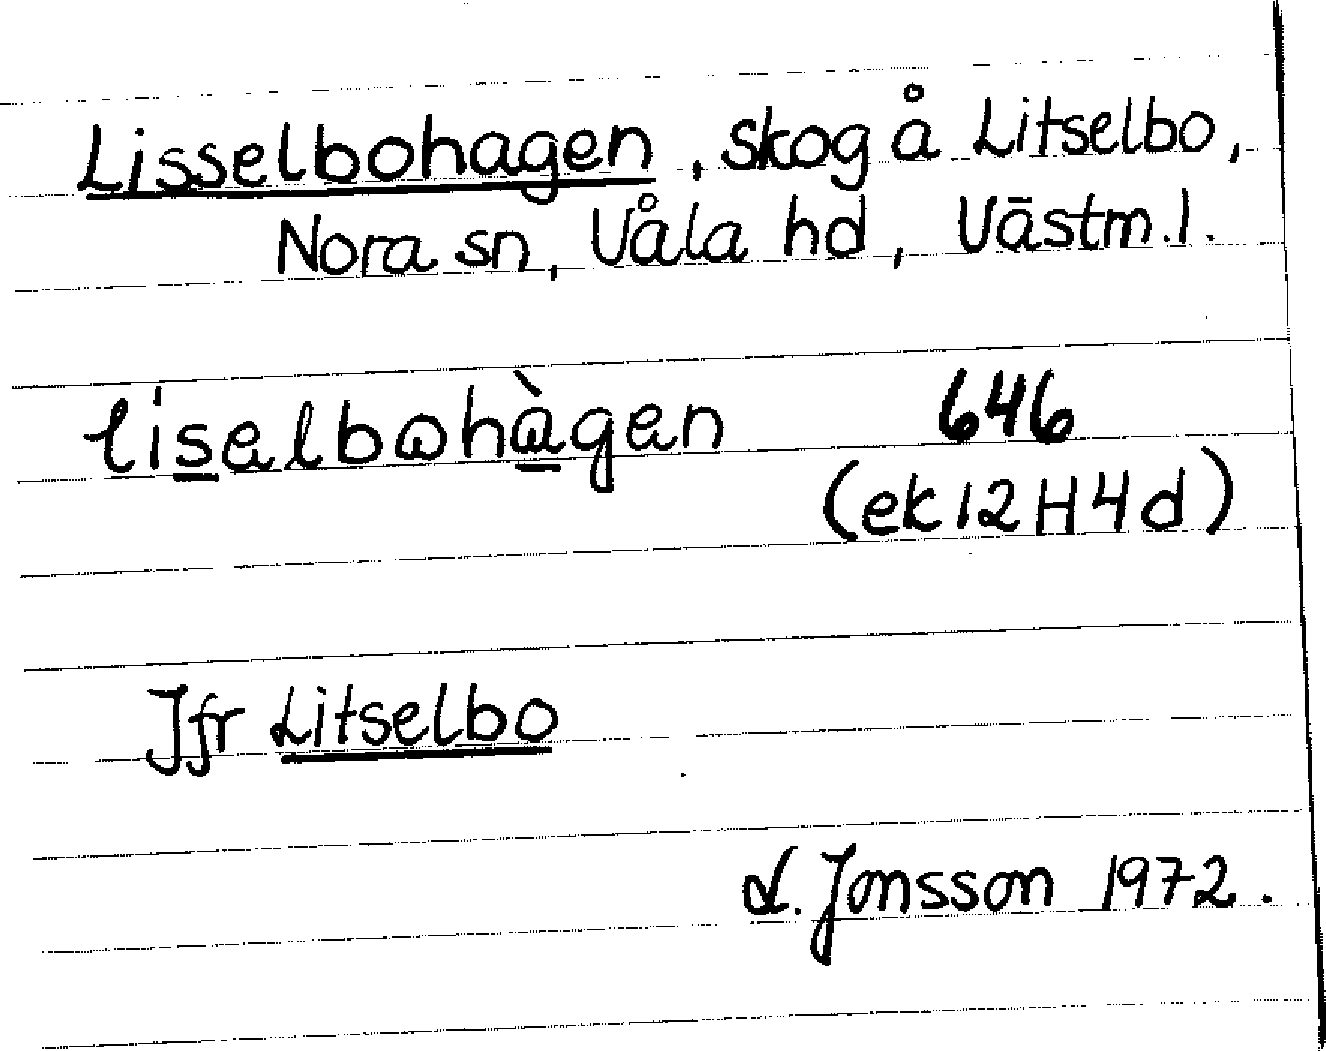 Lisselbohagen, skog å Litselbo,
Nora sn, Våla hd, Västm. l.
lisəlbωhὰgən 646
(ek 12 H 4 d)
Jfr Litselbo
L. Jonsson 1972.